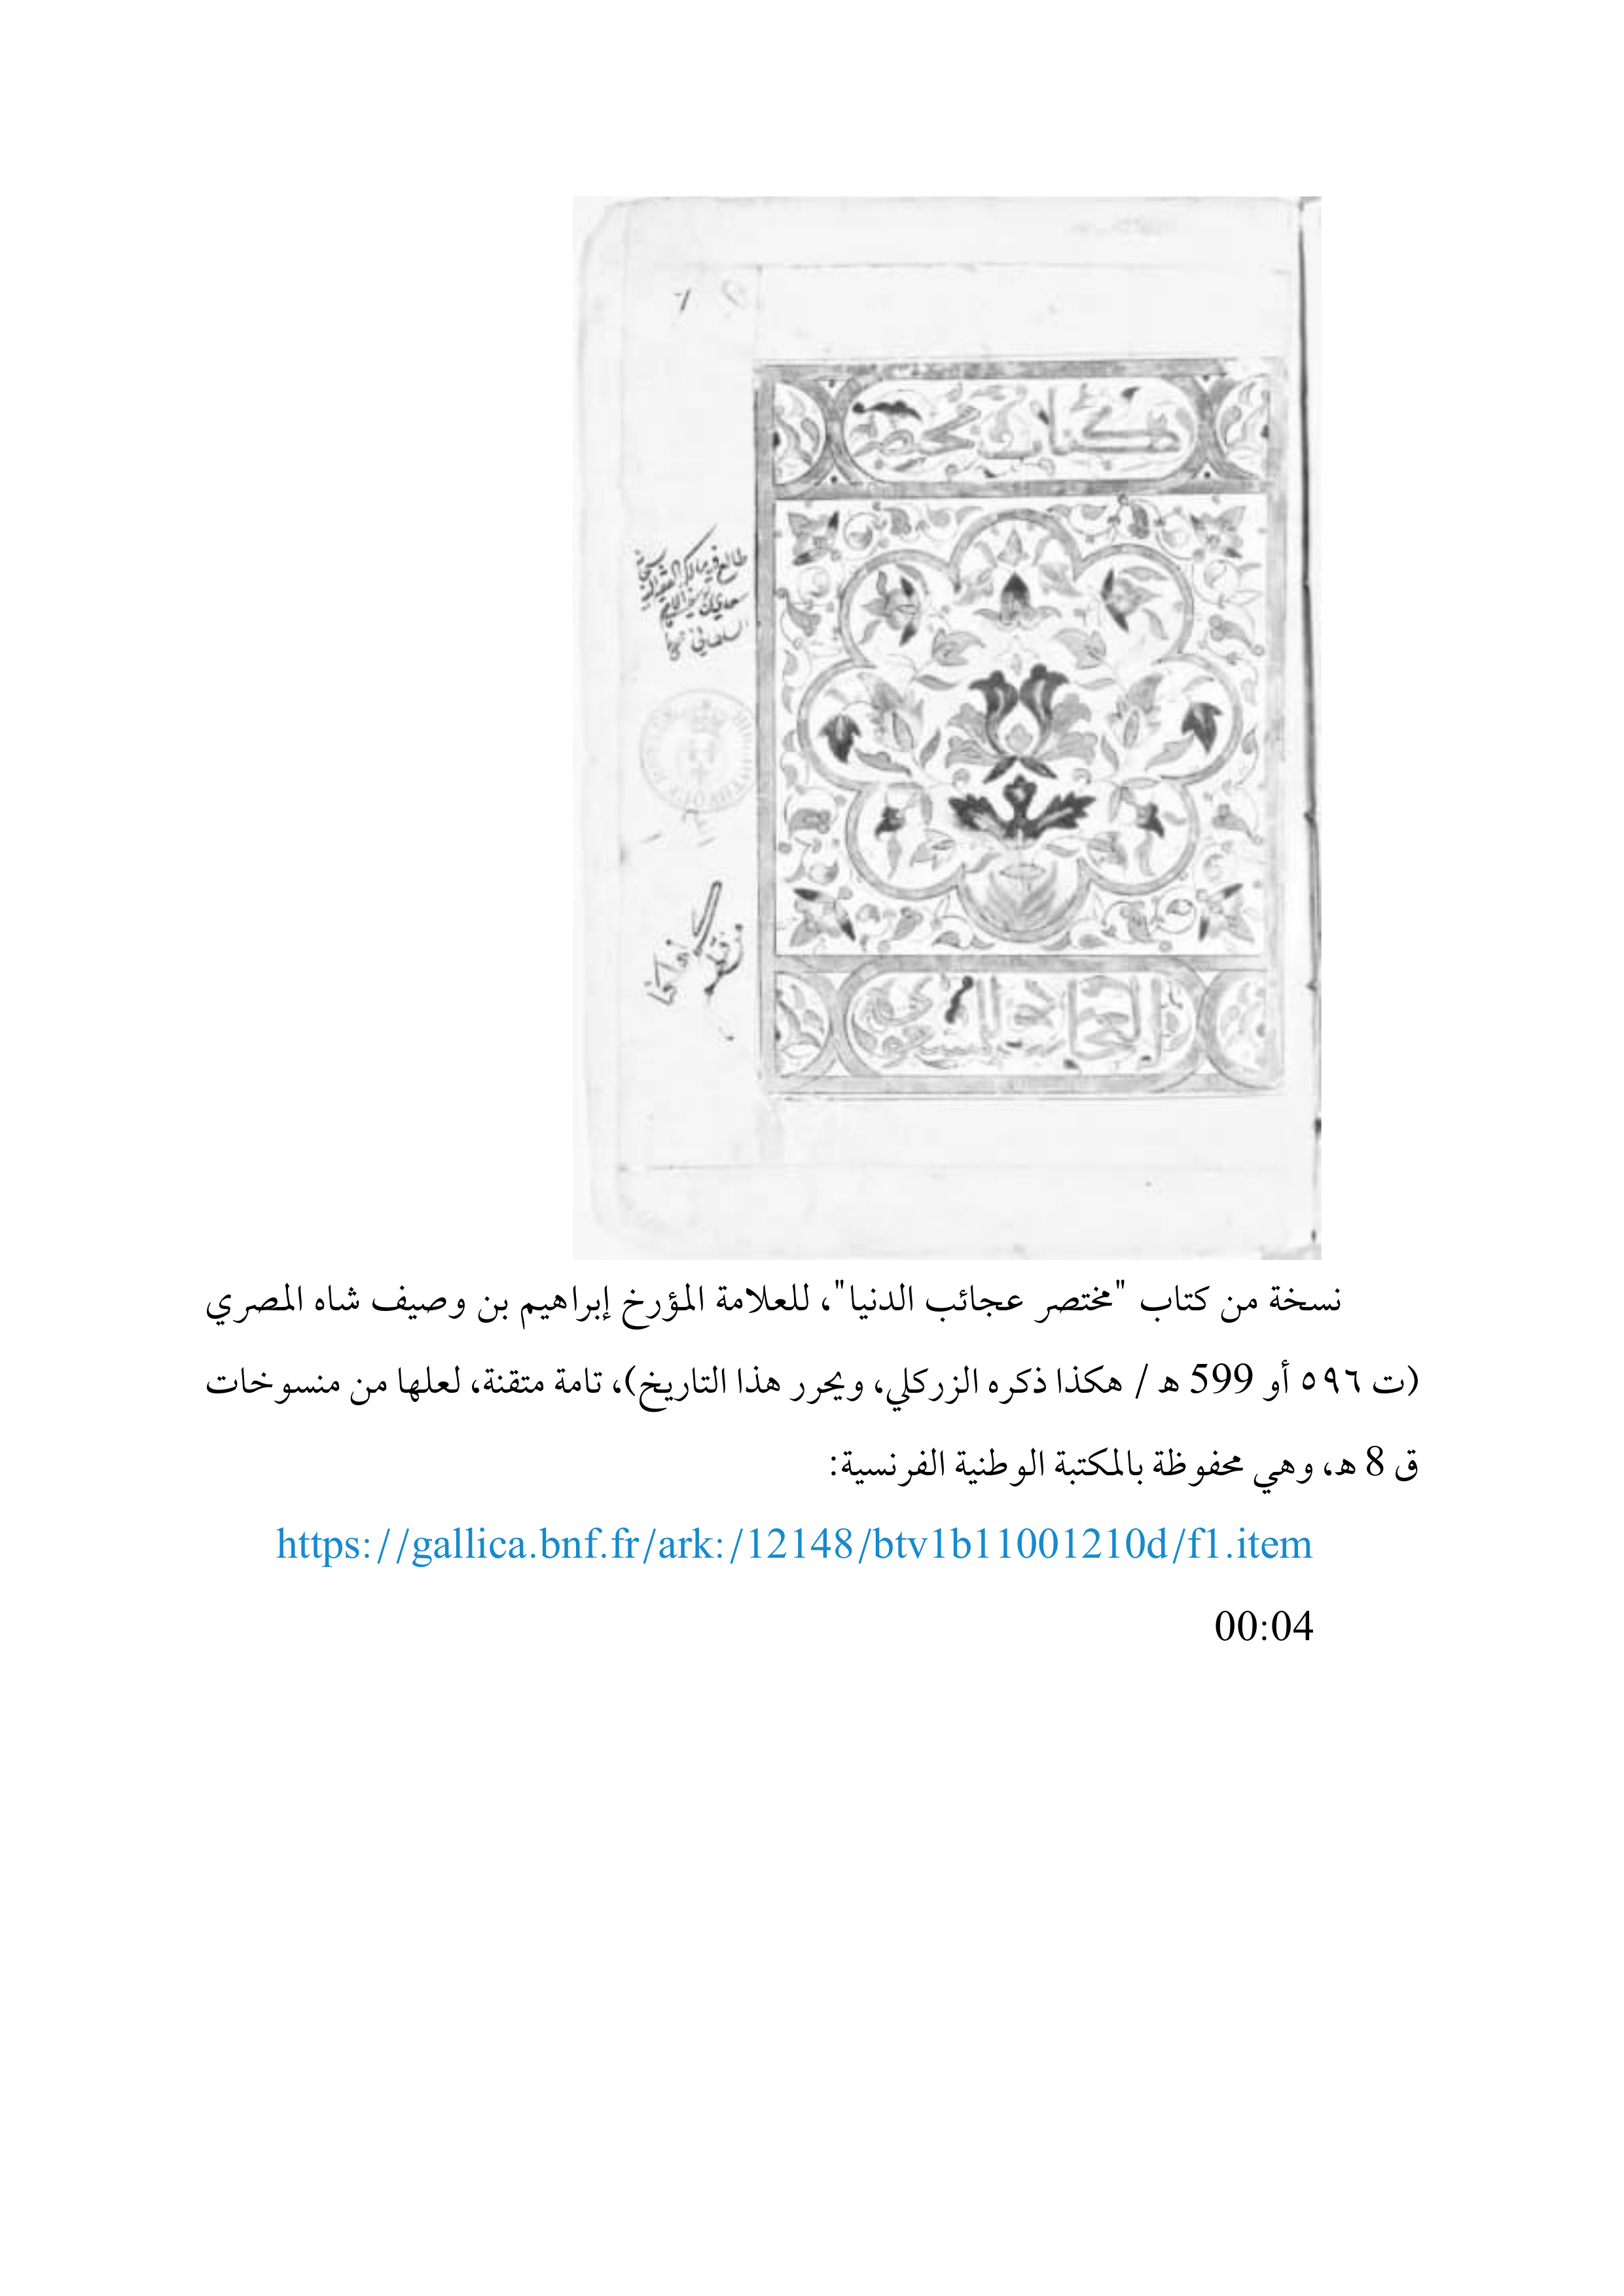 كتاب مختصر
طالع فيه مالكه الفقير
العجائب للمسعودي
نسخة من كتاب "مختصر عجائب الدنيا"، للعلامة المؤرخ إبراهيم بن وصيف شاه المصري
(ت ٥٩٦ أو 599 هـ / هكذا ذكره الزركلي، ويحرر هذا التاريخ)، تامة متقنة، لعلها من منسوخات
ق 8 هـ، وهي محفوظة بالمكتبة الوطنية الفرنسية:
https://gallica.bnf.fr/ark:/12148/btv1b11001210d/f1.item
00:04